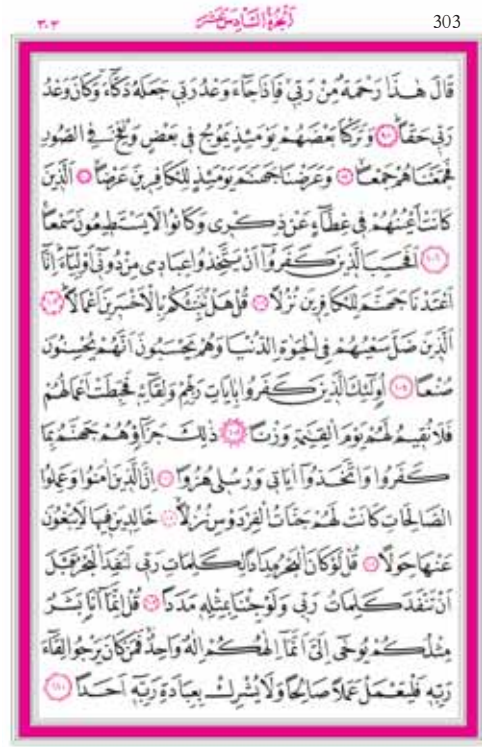 ٣٠٣ اَلْجُزْءُ السَّادِسُ عَشَرَ 303
قَالَ هٰذَا رَحْمَةٌ مِنْ رَبّٖي فَاِذَا جَٓاءَ وَعْدُ رَبّٖي جَعَلَهُ دَكَّٓاءَ وَكَانَ وَعْدُ
رَبّٖي حَقًّا ﴿٩٨﴾ وَتَرَكْنَا بَعْضَهُمْ يَوْمَئِذٍ يَمُوجُ فٖي بَعْضٍ وَنُفِخَ فِي الصُّورِ
فَجَمَعْنَاهُمْ جَمْعًا ﴿٩٩﴾ وَعَرَضْنَا جَهَنَّمَ يَوْمَئِذٍ لِلْكَافِرٖينَ عَرْضًا ﴿١٠٠﴾ اَلَّذٖينَ
كَانَتْ اَعْيُنُهُمْ فٖي غِطَٓاءٍ عَنْ ذِكْرٖي وَكَانُوا لَا يَسْتَطٖيعُونَ سَمْعًا
﴿١٠١﴾ اَفَحَسِبَ الَّذٖينَ كَفَرُٓوا اَنْ يَتَّخِذُوا عِبَادٖي مِنْ دُونٖٓي اَوْلِيَٓاءَ اِنَّٓا
اَعْتَدْنَا جَهَنَّمَ لِلْكَافِرٖينَ نُزُلًا ﴿١٠٢﴾ قُلْ هَلْ نُنَبِّئُكُمْ بِالْاَخْسَرٖينَ اَعْمَالًا ﴿١٠٣﴾
اَلَّذٖينَ ضَلَّ سَعْيُهُمْ فِي الْحَيٰوةِ الدُّنْيَا وَهُمْ يَحْسَبُونَ اَنَّهُمْ يُحْسِنُونَ
صُنْعًا ﴿١٠٤﴾ اُو۬لٰٓئِكَ الَّذٖينَ كَفَرُوا بِاٰيَاتِ رَبِّهِمْ وَلِقَٓائِهٖ فَحَبِطَتْ اَعْمَالُهُمْ
فَلَا نُقٖيمُ لَهُمْ يَوْمَ الْقِيٰمَةِ وَزْنًا ﴿١٠٥﴾ ذٰلِكَ جَزَٓاؤُ۬هُمْ جَهَنَّمُ بِمَا
كَفَرُوا وَاتَّخَذُٓوا اٰيَاتٖي وَرُسُلٖي هُزُوًا ﴿١٠٦﴾ اِنَّ الَّذٖينَ اٰمَنُوا وَعَمِلُوا
الصَّالِحَاتِ كَانَتْ لَهُمْ جَنَّاتُ الْفِرْدَوْسِ نُزُلًا ﴿١٠٧﴾ خَالِدٖينَ فٖيهَا لَا يَبْغُونَ
عَنْهَا حِوَلًا ﴿١٠٨﴾ قُلْ لَوْ كَانَ الْبَحْرُ مِدَادًا لِكَلِمَاتِ رَبّٖي لَنَفِدَ الْبَحْرُ قَبْلَ
اَنْ تَنْفَدَ كَلِمَاتُ رَبّٖي وَلَوْ جِئْنَا بِمِثْلِهٖ مَدَدًا ﴿١٠٩﴾ قُلْ اِنَّمَٓا اَنَا۬ بَشَرٌ
مِثْلُكُمْ يُوحٰٓى اِلَيَّ اَنَّمَٓا اِلٰهُكُمْ اِلٰهٌ وَاحِدٌ فَمَنْ كَانَ يَرْجُوا لِقَٓاءَ
رَبِّهٖ فَلْيَعْمَلْ عَمَلًا صَالِحًا وَلَا يُشْرِكْ بِعِبَادَةِ رَبِّهٖٓ اَحَدًا ﴿١١٠﴾